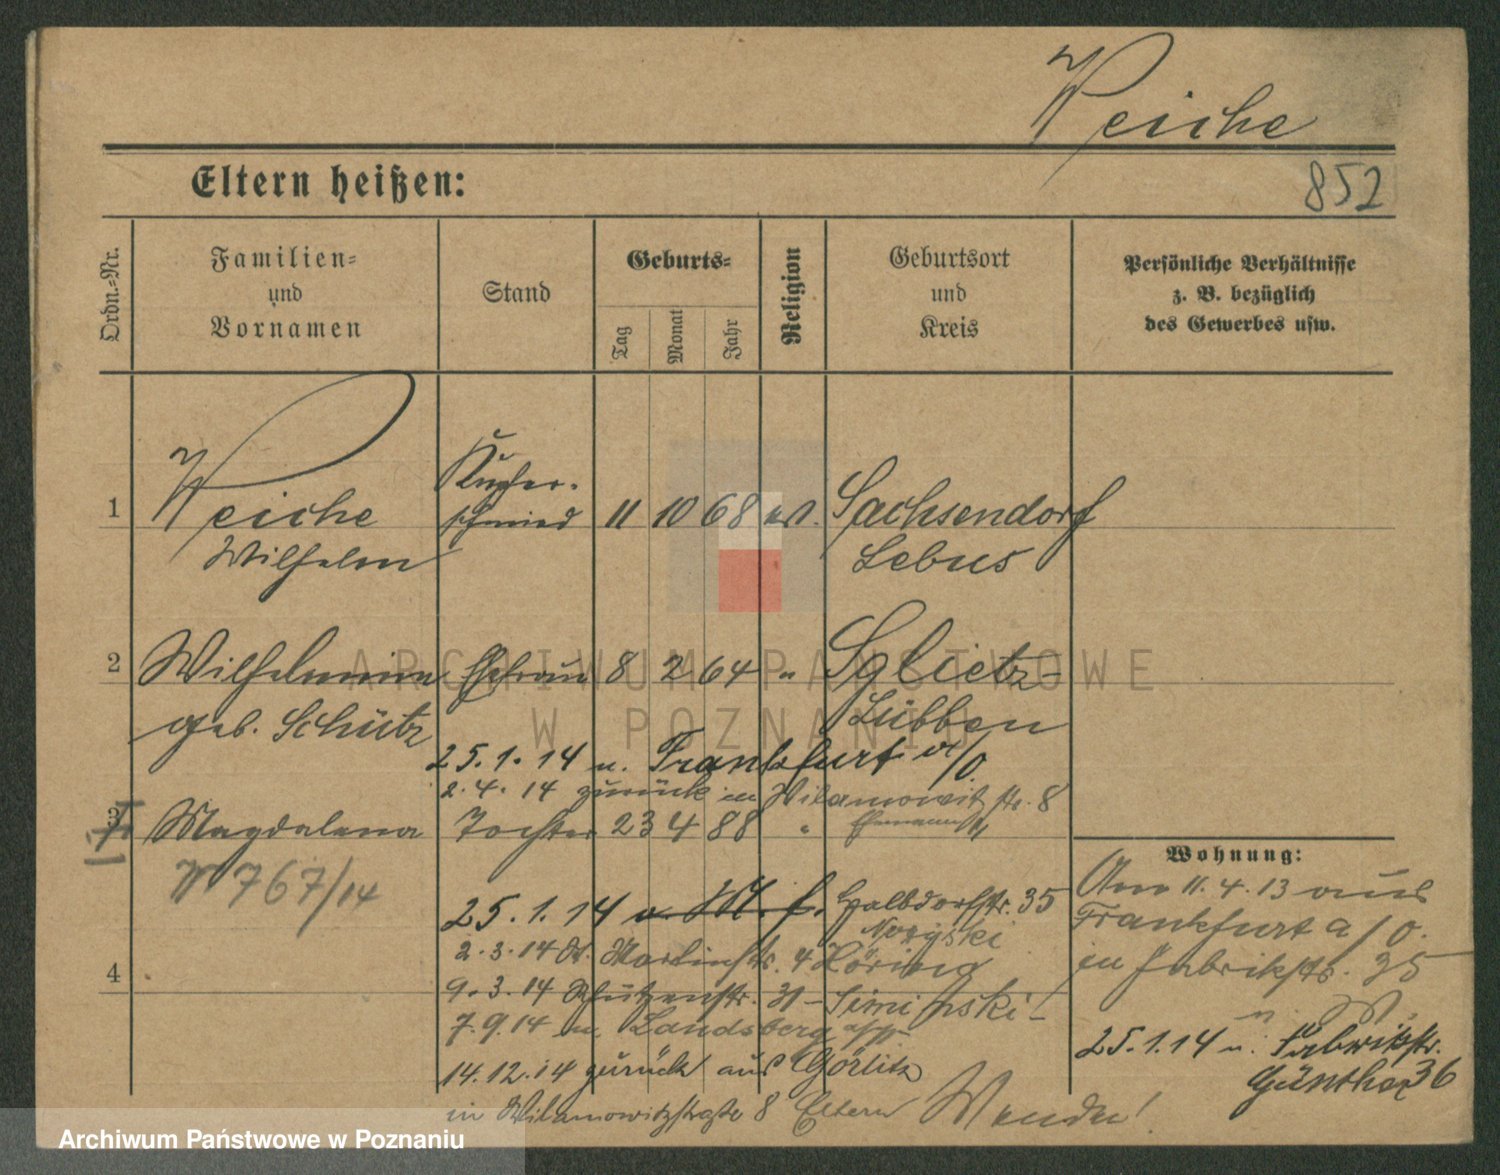 Weiche
Eltern heißen:
852
Ordn.-Nr.
Familien-
und
Vornamen
Stand
Geburts-
Tag
Monat
Jahr
Religion
Geburtsort
und
Kreis
Persönliche Verhältnisse
z. B. bezüglich
des Gewerbes usw.
1 Weiche Kupfer- schmied 11 10 68 ev. Sachsendorf
Wilhelm Lebus
2 Wilhelmine Ehefrau 8 2 64 " Sglietz-
geb. Schütz Lübben
25.1.14 n. Frankfurt a/O.
2.4.14 zurück in Wilamowitzstr. 8
Ehemann
3 Magdalena Tochter 23 4 88 "
W 767/14
25.1.14 Halbdorfstr. 35
2.3.14 Martinstr. 4 Höring
9.3.14 Schützenstr. 31 -
7.9.14 n. Landsberg
14.12.14 zurück aus Görlitz
in Wilamowitzstraße 8 Eltern Wenden!
4
Wohnung:
Am 11.4.13 aus
Frankfurt a/O.
in Fabrikstr. 35
25.1.14 n. Fabrikstr.
Günther 36
ARCHIWUM PAŃSTWOWE
W POZNANIU
Archiwum Państwowe w Poznaniu